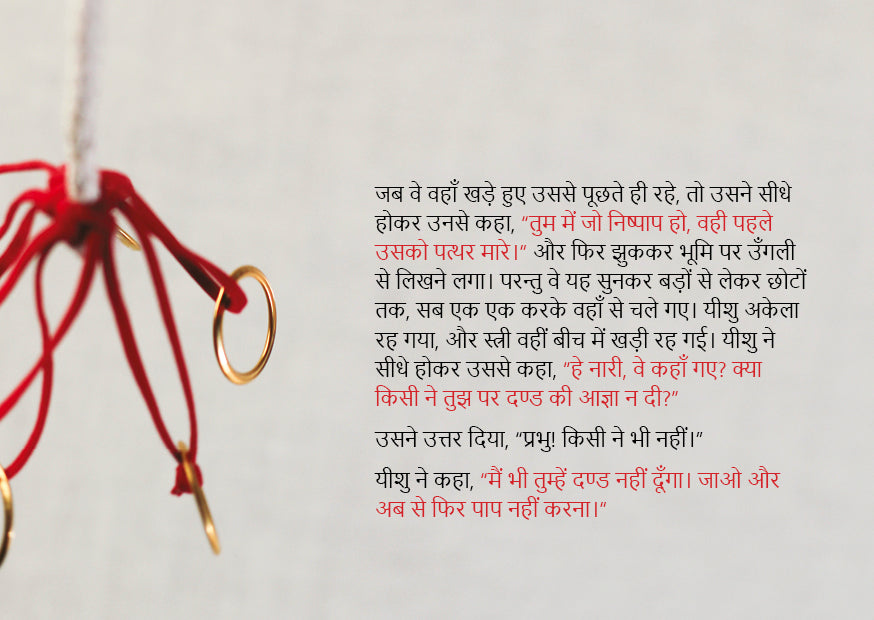 जब वे वहाँ खड़े हुए उससे पूछते ही रहे, तो उसने सीधे
होकर उनसे कहा, “तुम में जो निष्पाप हो, वही पहले
उसको पत्थर मारे।” और फिर झुककर भूमि पर उँगली
से लिखने लगा। परन्तु वे यह सुनकर बड़ों से लेकर छोटों
तक, सब एक एक करके वहाँ से चले गए। यीशु अकेला
रह गया, और स्त्री वहीं बीच में खड़ी रह गई। यीशु ने
सीधे होकर उससे कहा, “हे नारी, वे कहाँ गए? क्या
किसी ने तुझ पर दण्ड की आज्ञा न दी?”
उसने उत्तर दिया, “प्रभु! किसी ने भी नहीं।”
यीशु ने कहा, “मैं भी तुम्हें दण्ड नहीं दूँगा। जाओ और
अब से फिर पाप नहीं करना।”